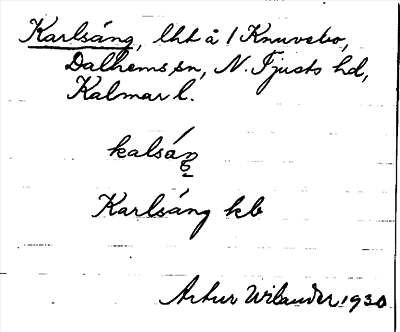 Karlsäng, lht å 1 Knuvebo,
Dalhems sn, N. Tjusts hd,
Kalmar l.
kalsáŋ
Karlsäng kb
Artur Wilander 1930